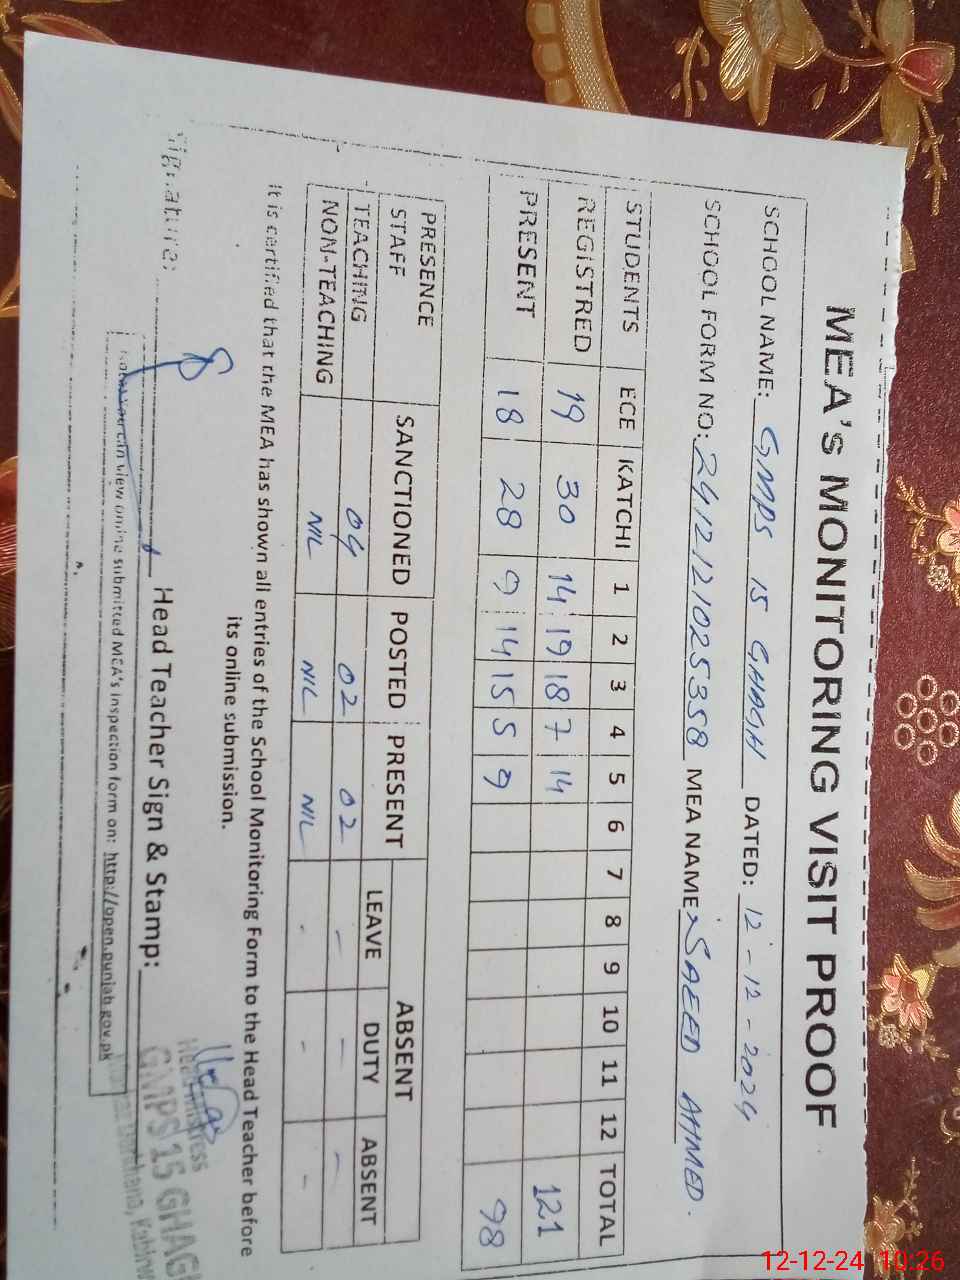 MEA's MONITORING VISIT PROOF
SCHOOL NAME: GMPS 15 GHAGH DATED: 12-12-2024
SCHOOL FORM NO: 2412121025358 MEA NAME: SAEED AHMED.
STUDENTS ECE KATCHI 1 2 3 4 5 6 7 8 9 10 11 12 TOTAL
REGISTRED 19 30 14 19 18 7 14 121
PRESENT 18 28 9 14 15 5 9 98
PRESENCE STAFF SANCTIONED POSTED PRESENT ABSENT
LEAVE DUTY ABSENT
TEACHING 04 02 02 - - -
NON-TEACHING NIL NIL NIL - - -
It is certified that the MEA has shown all entries of the School Monitoring Form to the Head Teacher before
its online submission.
Signature: Head Teacher Sign & Stamp:
Headmistress
GMPS 15 GHAGH
you can view online submitted MEA's inspection form on: http://open.punjab.gov.pk
12-12-24 10:26